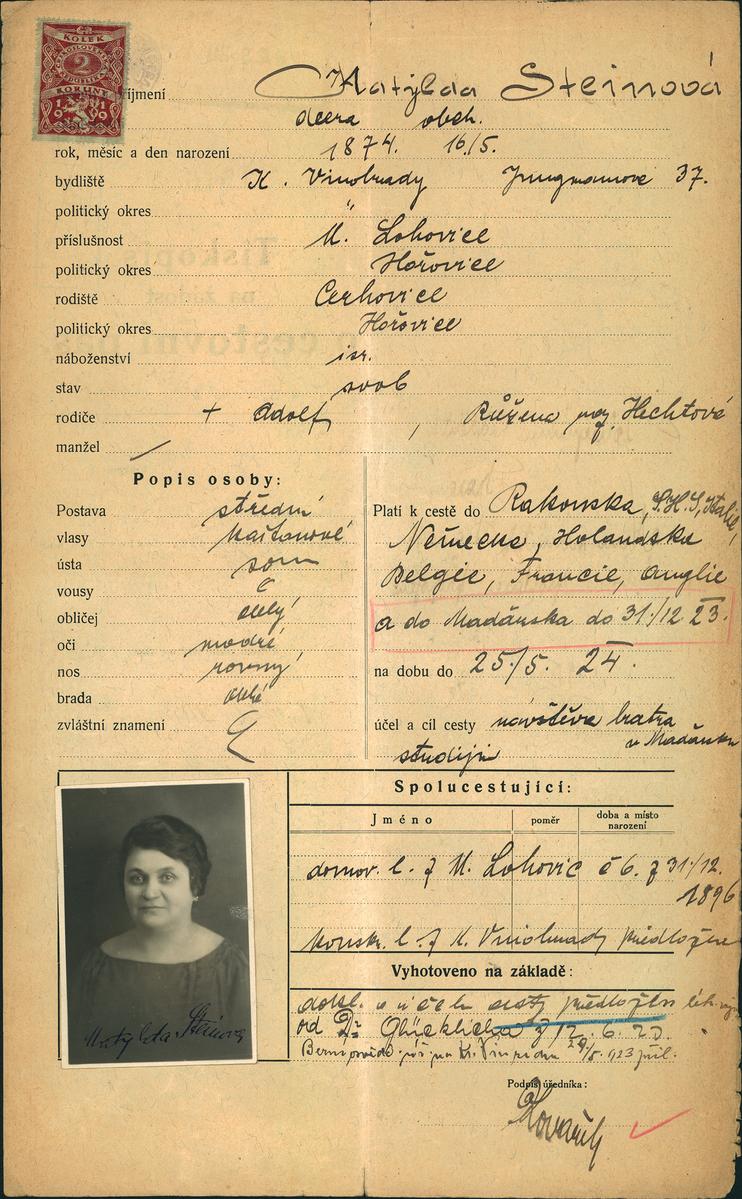 KOLEK
2
KORUNY
1919
říjmení Matylda Steinová
dcera obch.
rok, měsíc a den narození 1874. 16/5.
bydliště K. Vinohrady Jungmanova 37.
politický okres "
příslušnost M. Lohovice
politický okres Hořovice
rodiště Cerhovice
politický okres Hořovice
náboženství isr.
stav svob
rodiče + Adolf, Růžena roz. Hechtová
manžel /
Popis osoby:
Postava střední
vlasy kaštanové
ústa
vousy
obličej
oči modré
nos rovný
brada
zvláštní znamení
Platí k cestě do Rakouska, S.H.S, Italie,
Německa, Holandska
Belgie, Francie, Anglie
a do Maďarska do 31/12 23.
na dobu do 25/5. 24.
účel a cíl cesty návštěva bratra
v Maďarsku
studijní
Spolucestující:
Jméno poměr doba a místo
narození
domov. l. z M. Lohovic č 6. z 31/12.
1896
konskr. l. z K. Vinohrady předložen
Vyhotoveno na základě:
dokl. o účelu cesty předložen lék.
od Dr Glücklicha z 12. 6. 23.
Matylda Steinová
Podpis úředníka:
Kovařík